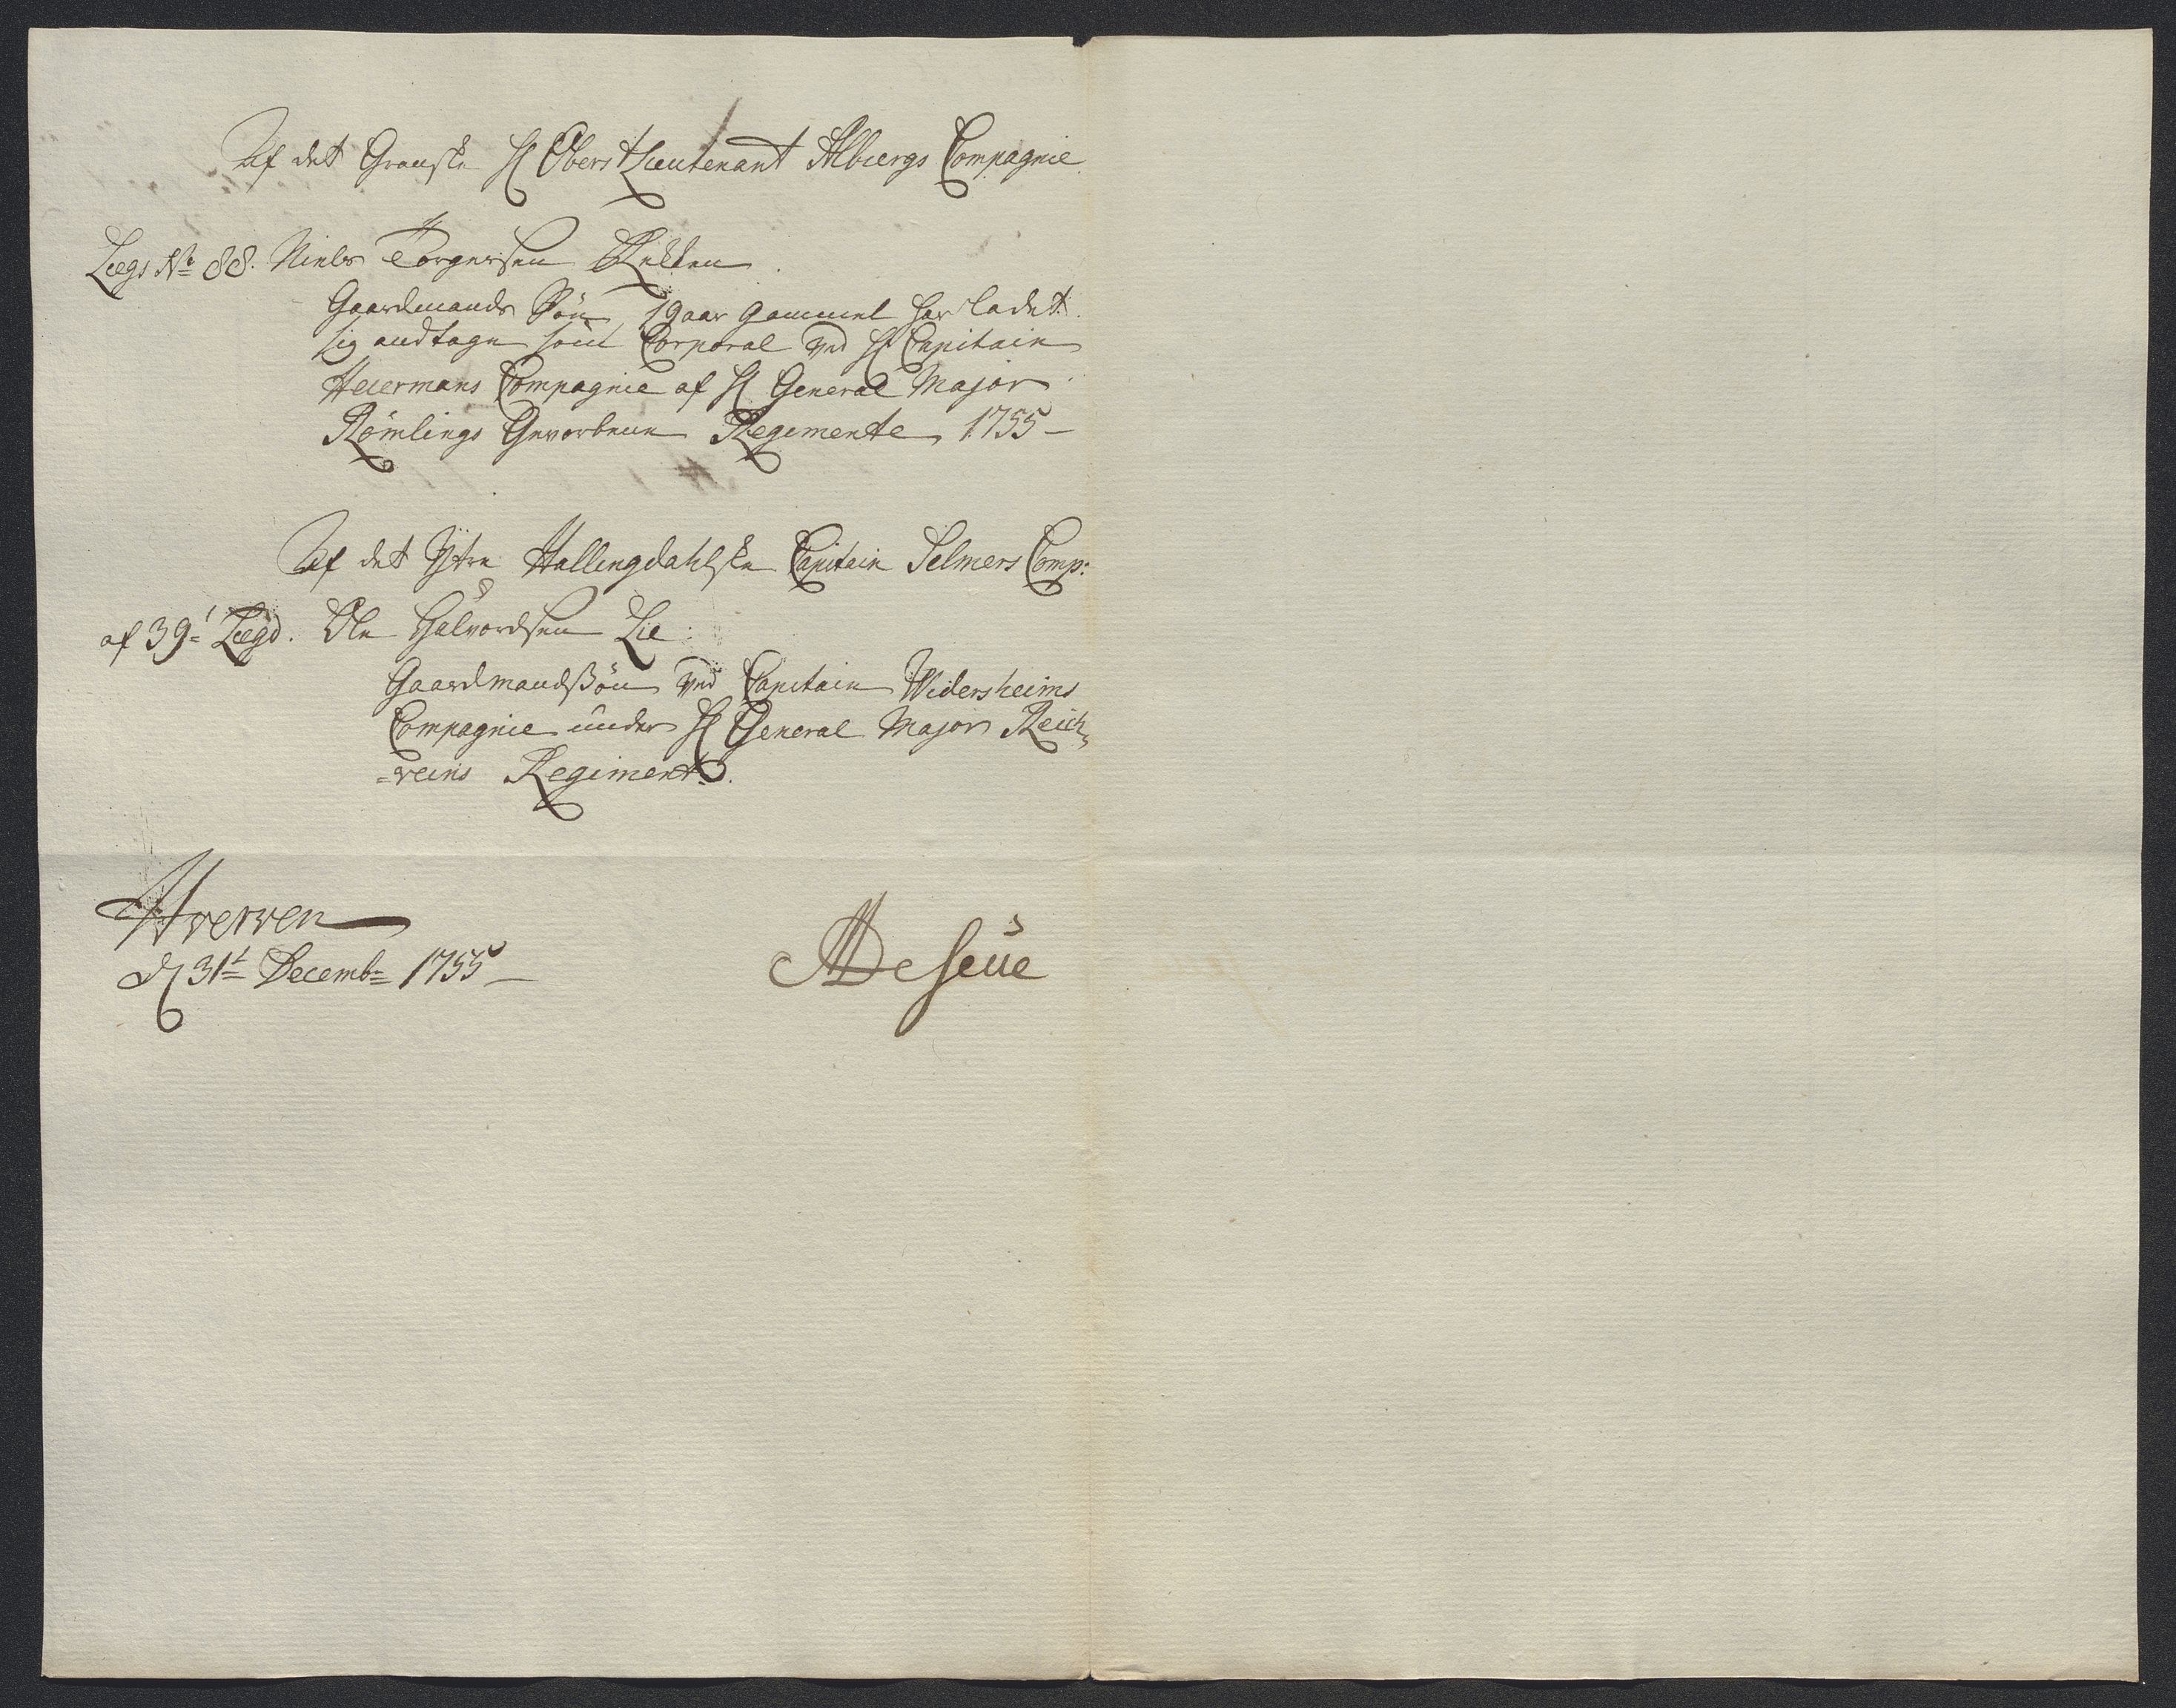 Af det Granske H Oberst Lieutenant Albiergs Compagnie
Lægs No 88. Niels Torgersen
Gaardmands Søn, 19 aar gammel har ladet
sig andtage som Corporal ved H Capitain
Heiermans Compagnie af H General Major
Römlings Gevorbene Regimente 1755 –
Af det Ytre Hallingdahlske Capitain Selmers Comp:
af 39t Lægd. Ole Halvordsen Lie
Gaardmandssøn ved Capitain Widersheims
Compagnie under H General Major Reich-
-veins Regiment.
Hverven
d 31t Decembr 1755 –
De Seue